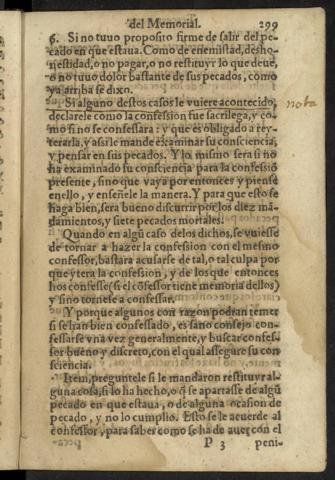 del Memorial. 299
6. Si no tuuo proposito firme de salir del pe-
cado en que estaua. Como de enemistad, desho-
nestidad, o no pagar, o no restituyr lo que deue,
o no tuuo dolor bastante de sus pecados, como
ya arriba se dixo.
Si alguno destos casos le vuiere acontecido,
declarele como la confession fue sacrilega, y co-
mo si no se confessara: y que es obligado a rey-
terarla, y assi le mande examinar su consciencia,
y pensar en sus pecados. Y lo mismo sera si no
ha examinado su consciencia para la confessiō
presente, sino que vaya por entonces y piense
en ello, y enseñele la manera. Y para que esto se
haga bien, sera bueno discurrir por los diez mā-
damientos, y siete pecados mortales.
Quando en algū caso de los dichos, se vuiesse
de tornar a hazer la confession con el mesmo
confessor, bastara acusarse de tal, o tal culpa por
que ytera la confession, y de los que entonces
hos confesse (si el cōfessor tiene memoria dellos)
y sino tornese a confessar.
Y porque algunos con razon podran temer
si se han bien confessado, es sano consejo con-
fessarse vna vez generalmente, y buscar confes-
sor bueno y discreto, con el qual assegure su con
sciencia.
Item, preguntele si le mandaron restituyr al-
guna cosa, si lo ha hecho, o q̄ se apartasse de algū
pecado en que estaua, o de alguna ocasion de
pecado, y no lo cumplio. Esto se le acuerde al
confessor, para saber como se ha de auer con el
P 3 peni-
nota